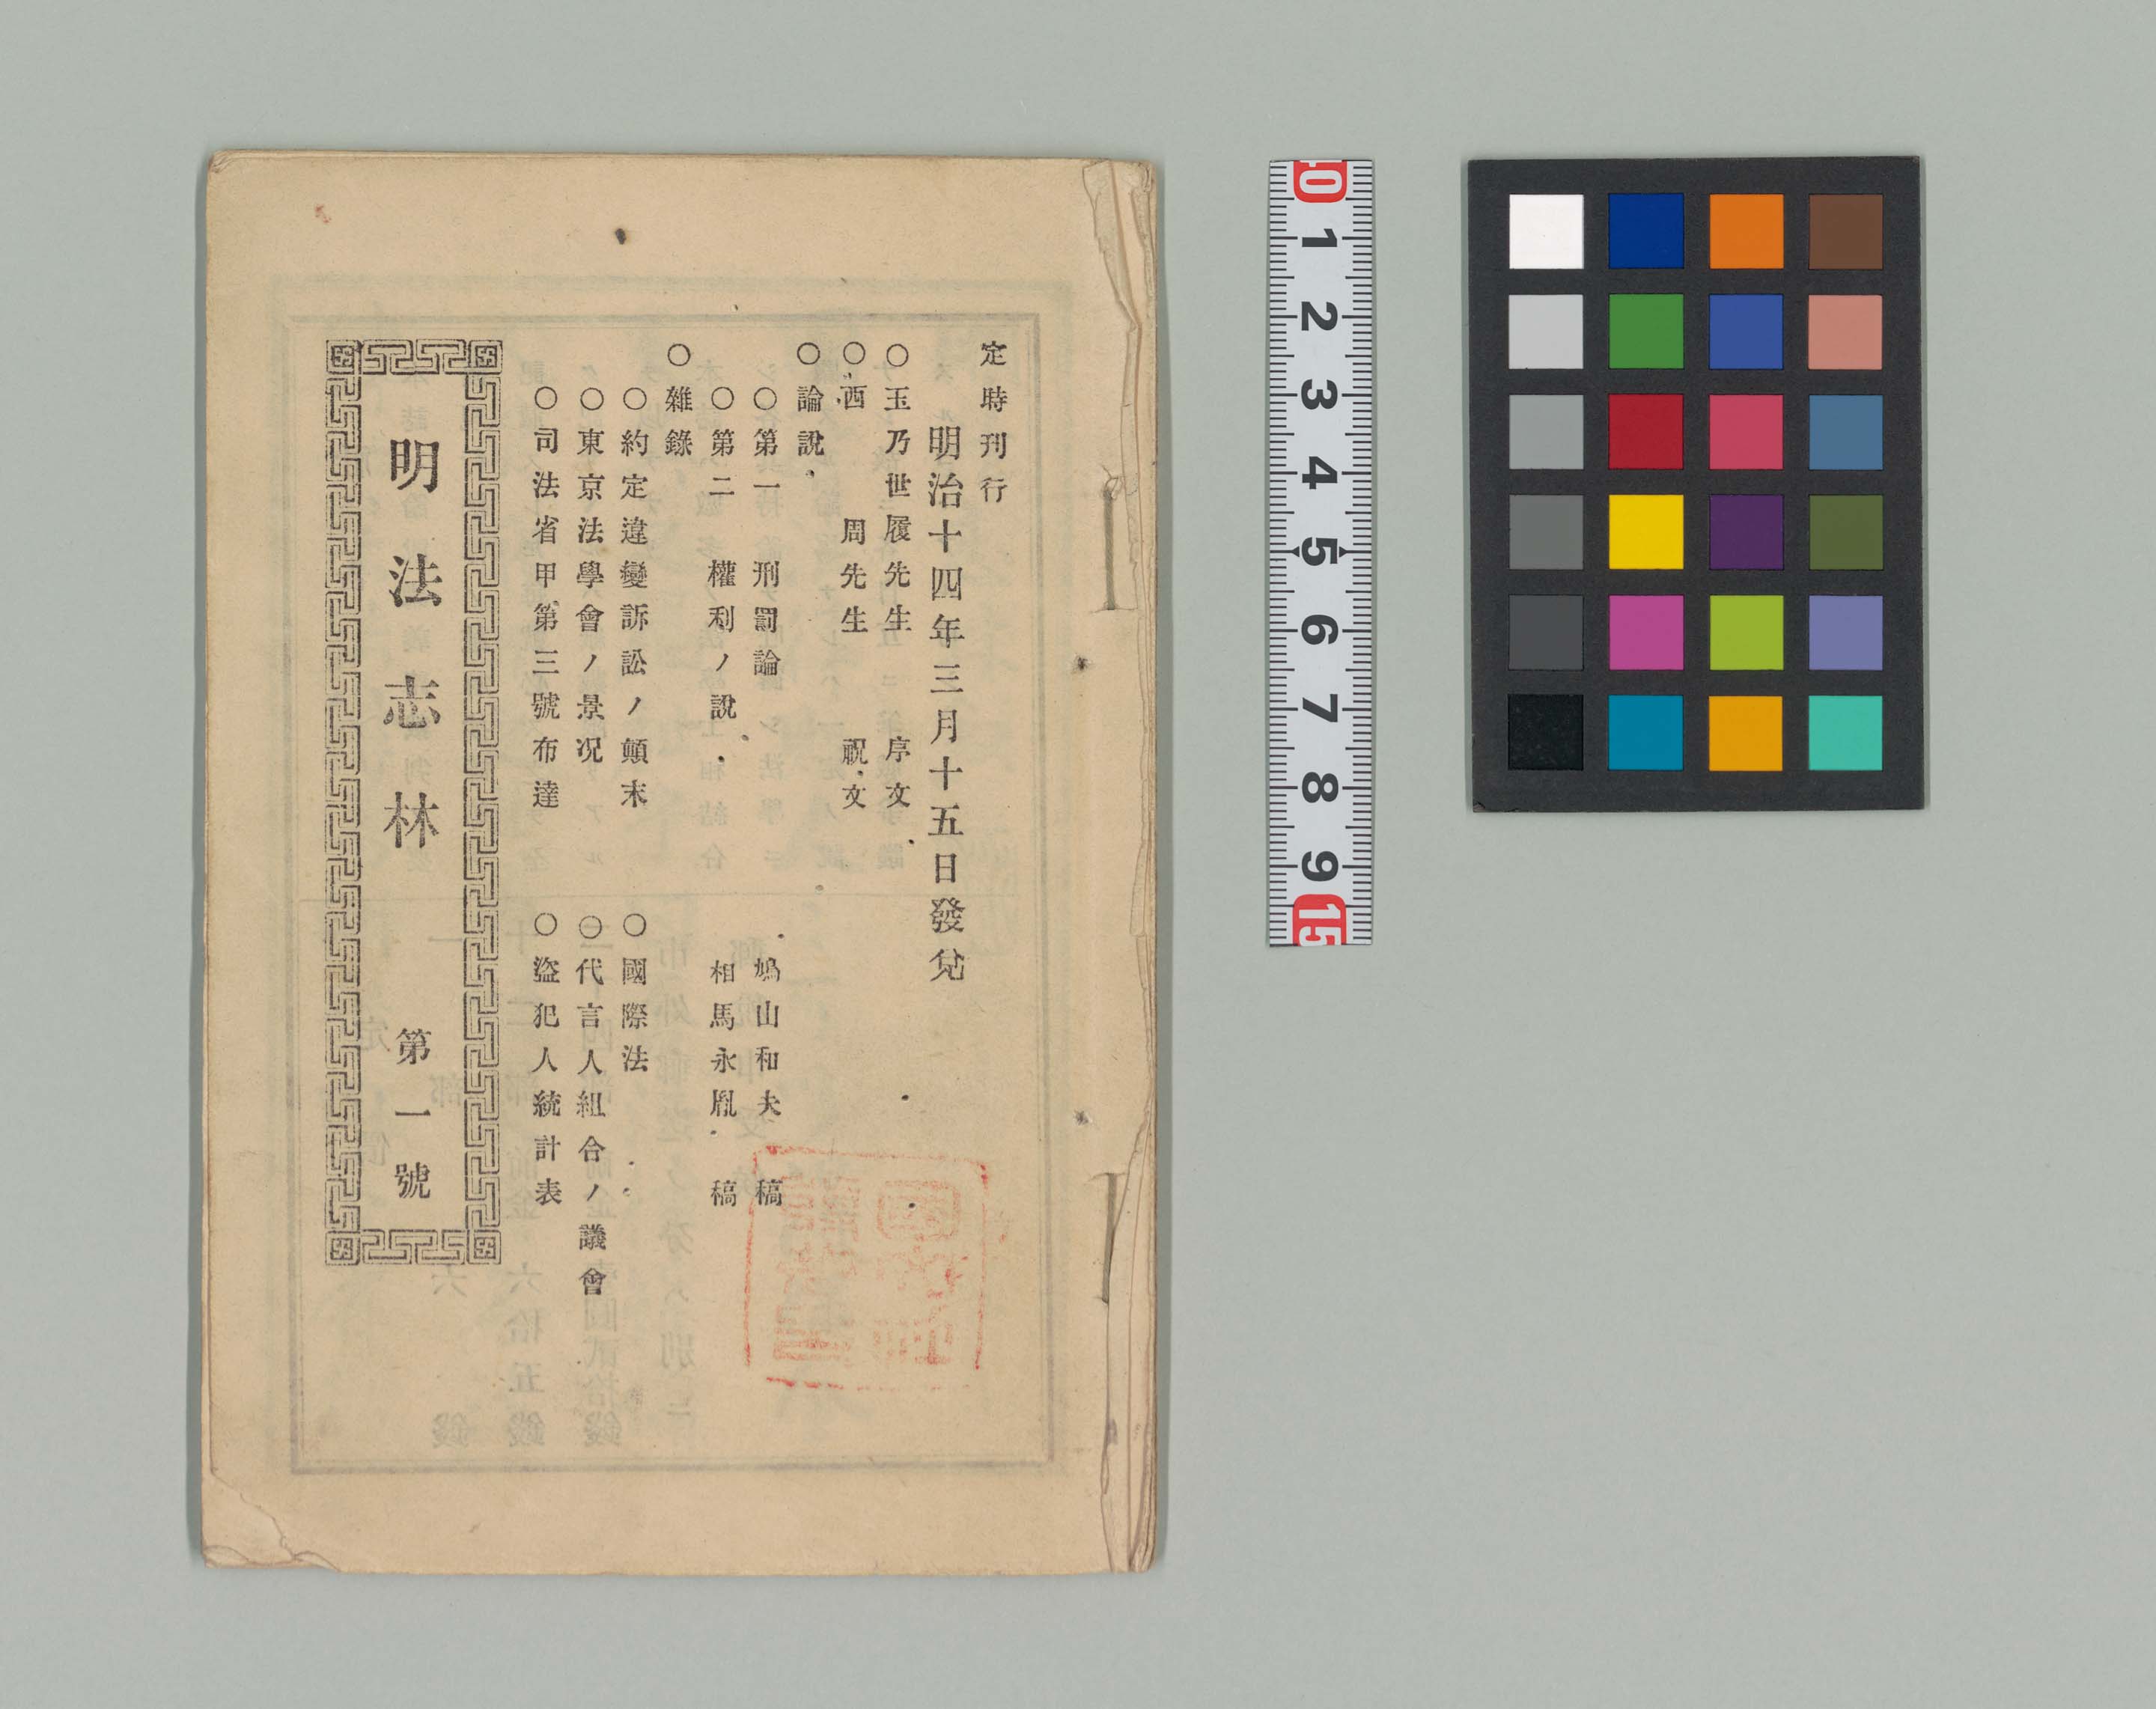 定時刊行
明治十四年三月十五日發兌
○玉乃世履先生 序文
○西 周先生 祝文
○論說
○第一 刑罰論 鳩山和夫 稿
○第二 權利ノ說 相馬永胤 稿
○雜錄
○約定違變訴訟ノ顛末 ○國際法
○東京法學會ノ景况 ○代言人組合ノ議會
○司法省甲第三號布達 ○盜犯人統計表
明法志林 第一號
0 1 2 3 4 5 6 7 8 9